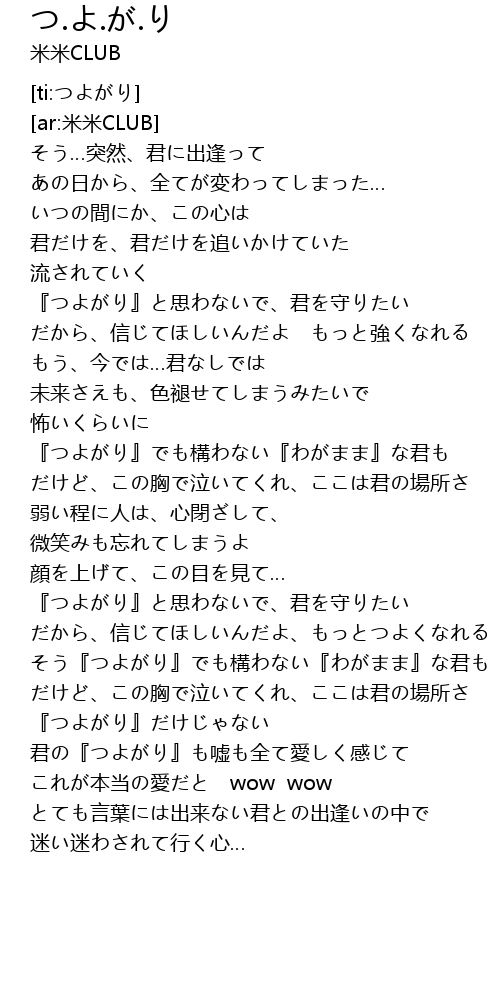 つ.よ.が.り
米米CLUB
[ti:つよがり]
[ar:米米CLUB]
そう...突然、君に出逢って
あの日から、全てが変わってしまった...
いつの間にか、この心は
君だけを、君だけを追いかけていた
流されていく
『つよがり』と思わないで、君を守りたい
だから、信じてほしいんだよ　もっと強くなれる
もう、今では...君なしでは
未来さえも、色褪せてしまうみたいで
怖いくらいに
『つよがり』でも構わない『わがまま』な君も
だけど、この胸で泣いてくれ、ここは君の場所さ
弱い程に人は、心閉ざして、
微笑みも忘れてしまうよ
顔を上げて、この目を見て...
『つよがり』と思わないで、君を守りたい
だから、信じてほしいんだよ、もっとつよくなれる
そう『つよがり』でも構わない『わがまま』な君も
だけど、この胸で泣いてくれ、ここは君の場所さ
『つよがり』だけじゃない
君の『つよがり』も嘘も全て愛しく感じて
これが本当の愛だと　wow wow
とても言葉には出来ない君との出逢いの中で
迷い迷わされて行く心...